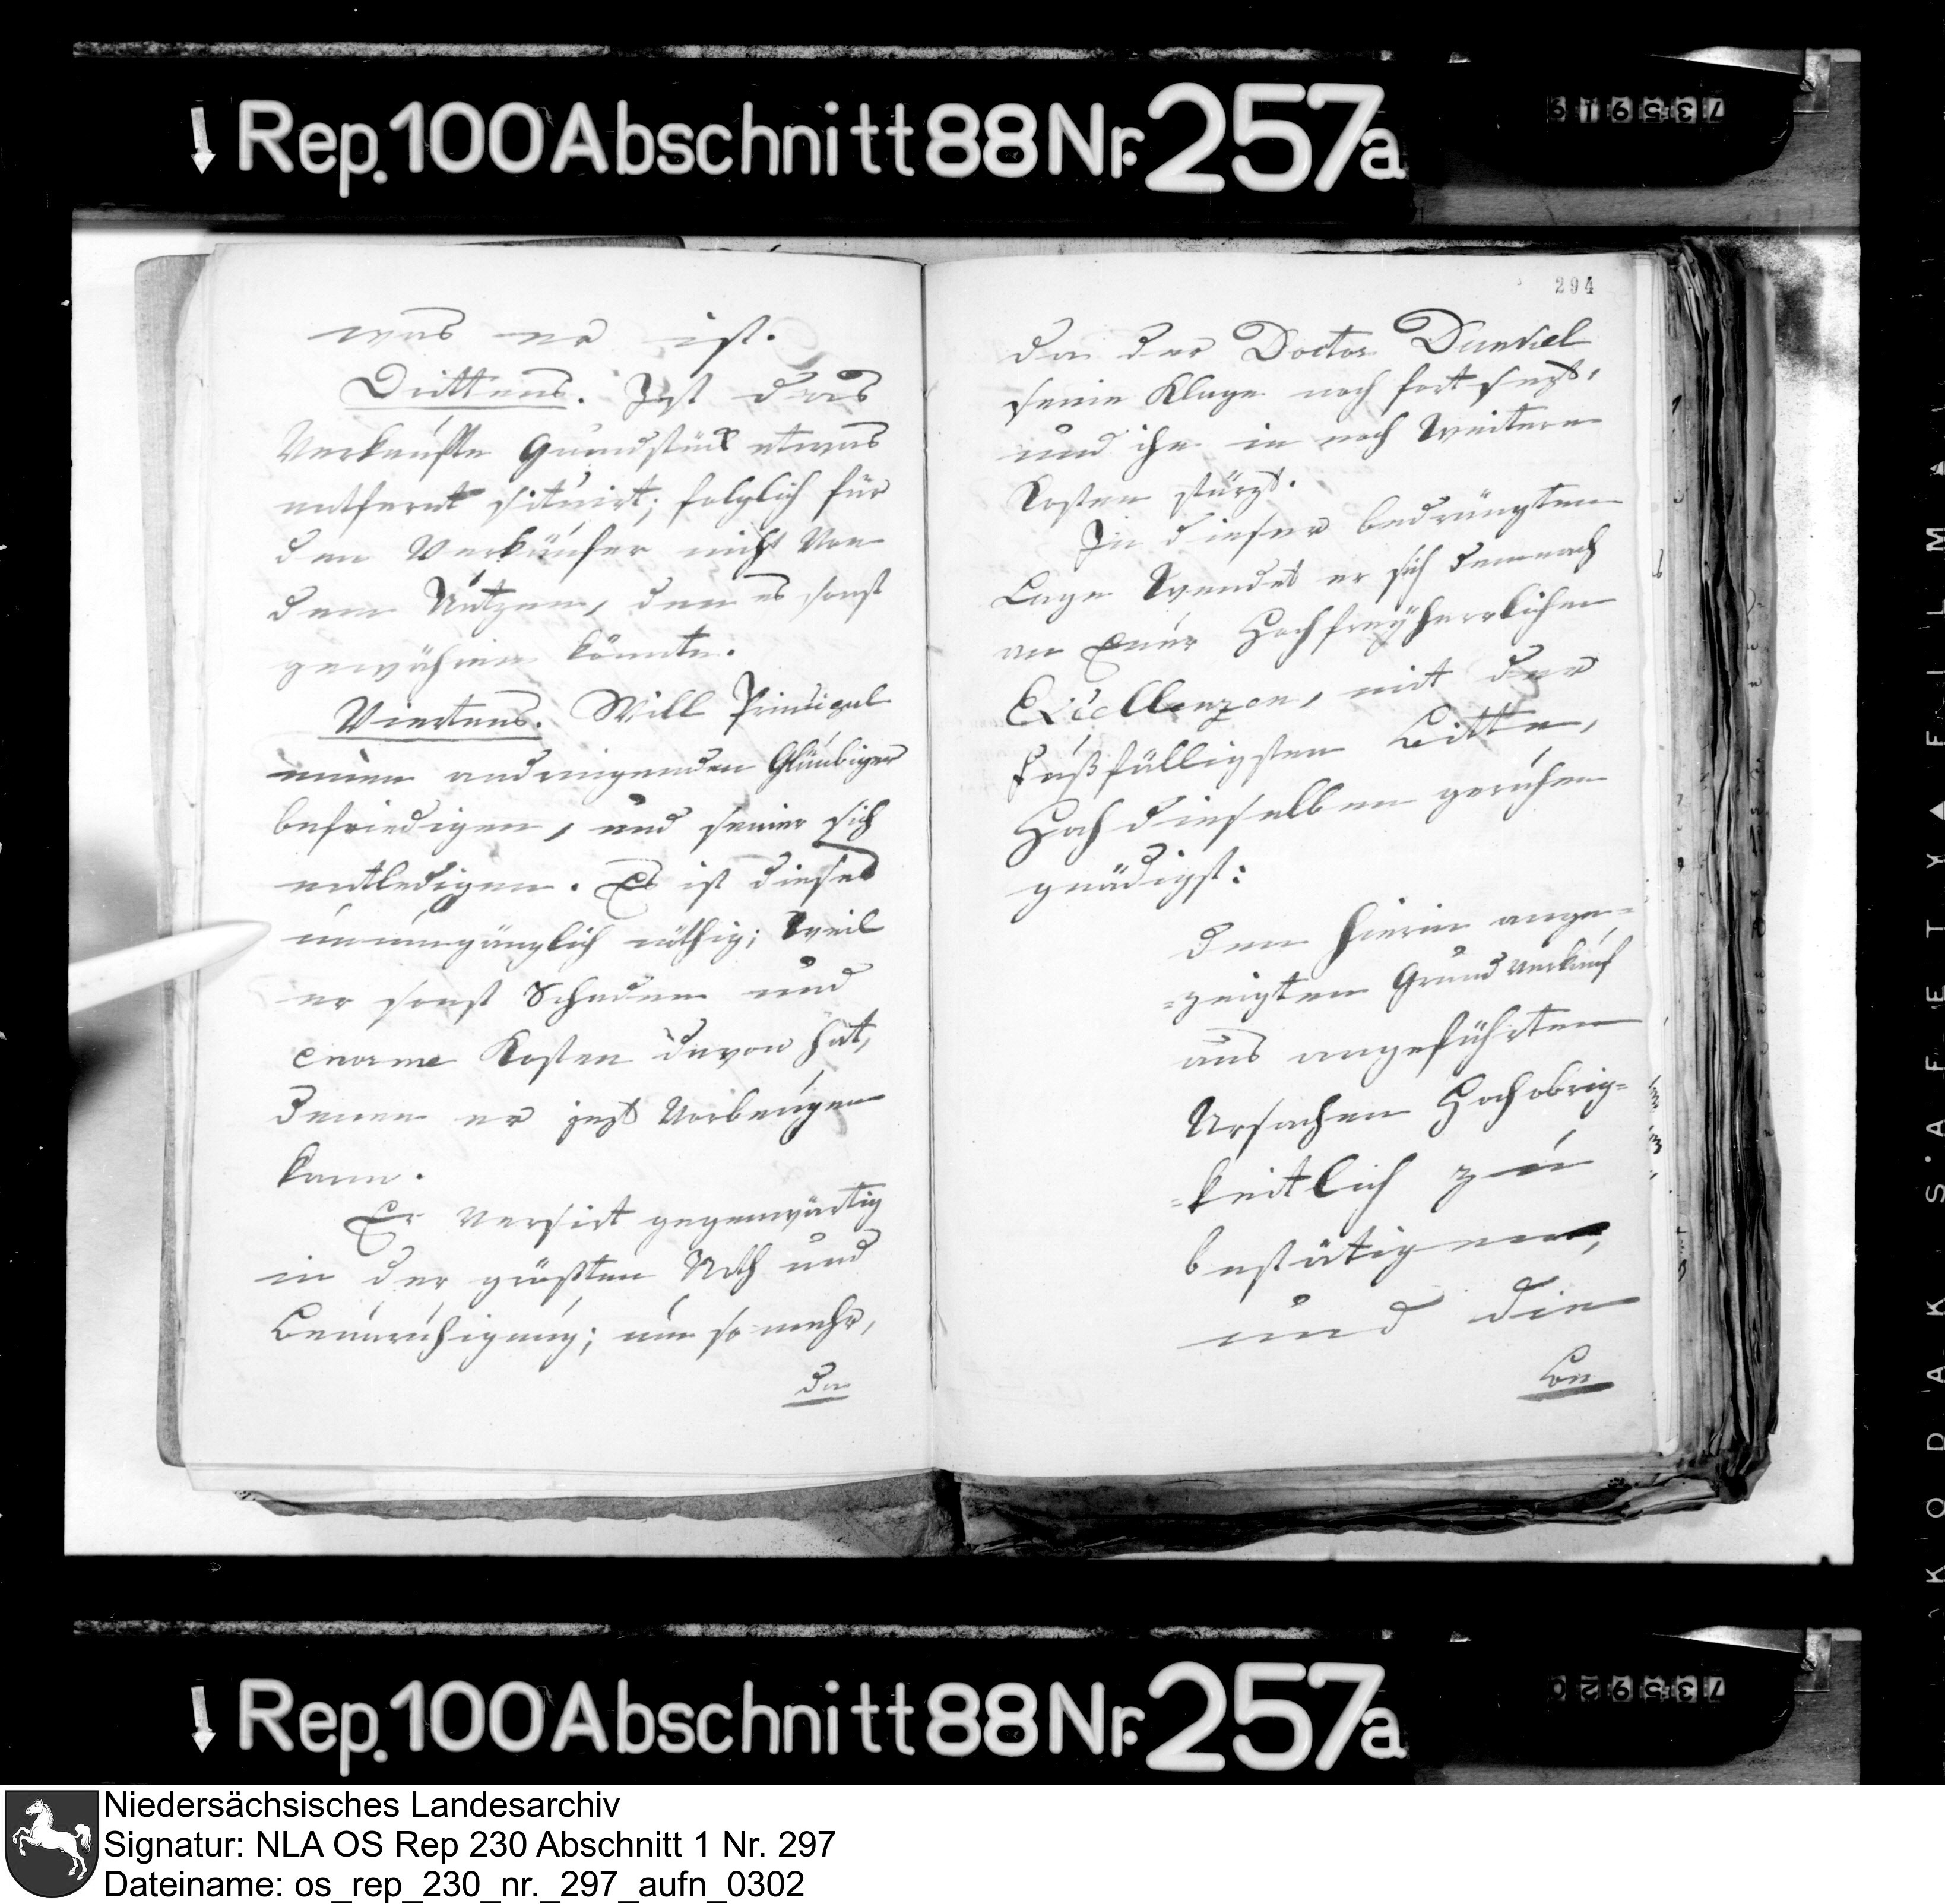 Rep. 100 Abschnitt 88 Nr. 257a
735919
was er ist.
Drittens. Ist das
Verkaufte Grundstück etwas
entfernt situirt; folglich für
den Verkäufer nicht von
dem Nutzen, den es sonst
gewähren könnte.
Viertens. Will Principal
einen andringenden Gläubiger
befriedigen, und seiner sich
entledigen. Es ist dieses
unumgänglich nöthig; weil
er sonst Schaden und
enorme Kosten davon hat,
denen er jezt Vorbeugen
kann.
Er versirt gegenwärtig
in der größten Noth und
Beunruhigung; um so mehr,
da
294
da der Doctor Dunckel
seine Klage noch fortsezt,
und ihn in noch weitere
Kosten stürzt.
In dieser bedrängten
Lage wendet er sich demnach
an Euer Hochfreyherrlichen
Excellenzen, mit der
fußfälligsten Bitte,
Hochdieselben geruhen
gnädigst:
den hierin ange-
=zeigten Grundverkauf
aus angeführten
Ursachen Hochobrig=
=keitlich zu
bestätigen,
und die
Con
Rep. 100 Abschnitt 88 Nr. 257a
735920
KODAK SAFETY FILM
Niedersächsisches Landesarchiv
Signatur: NLA OS Rep 230 Abschnitt 1 Nr. 297
Dateiname: os_rep_230_nr._297_aufn_0302